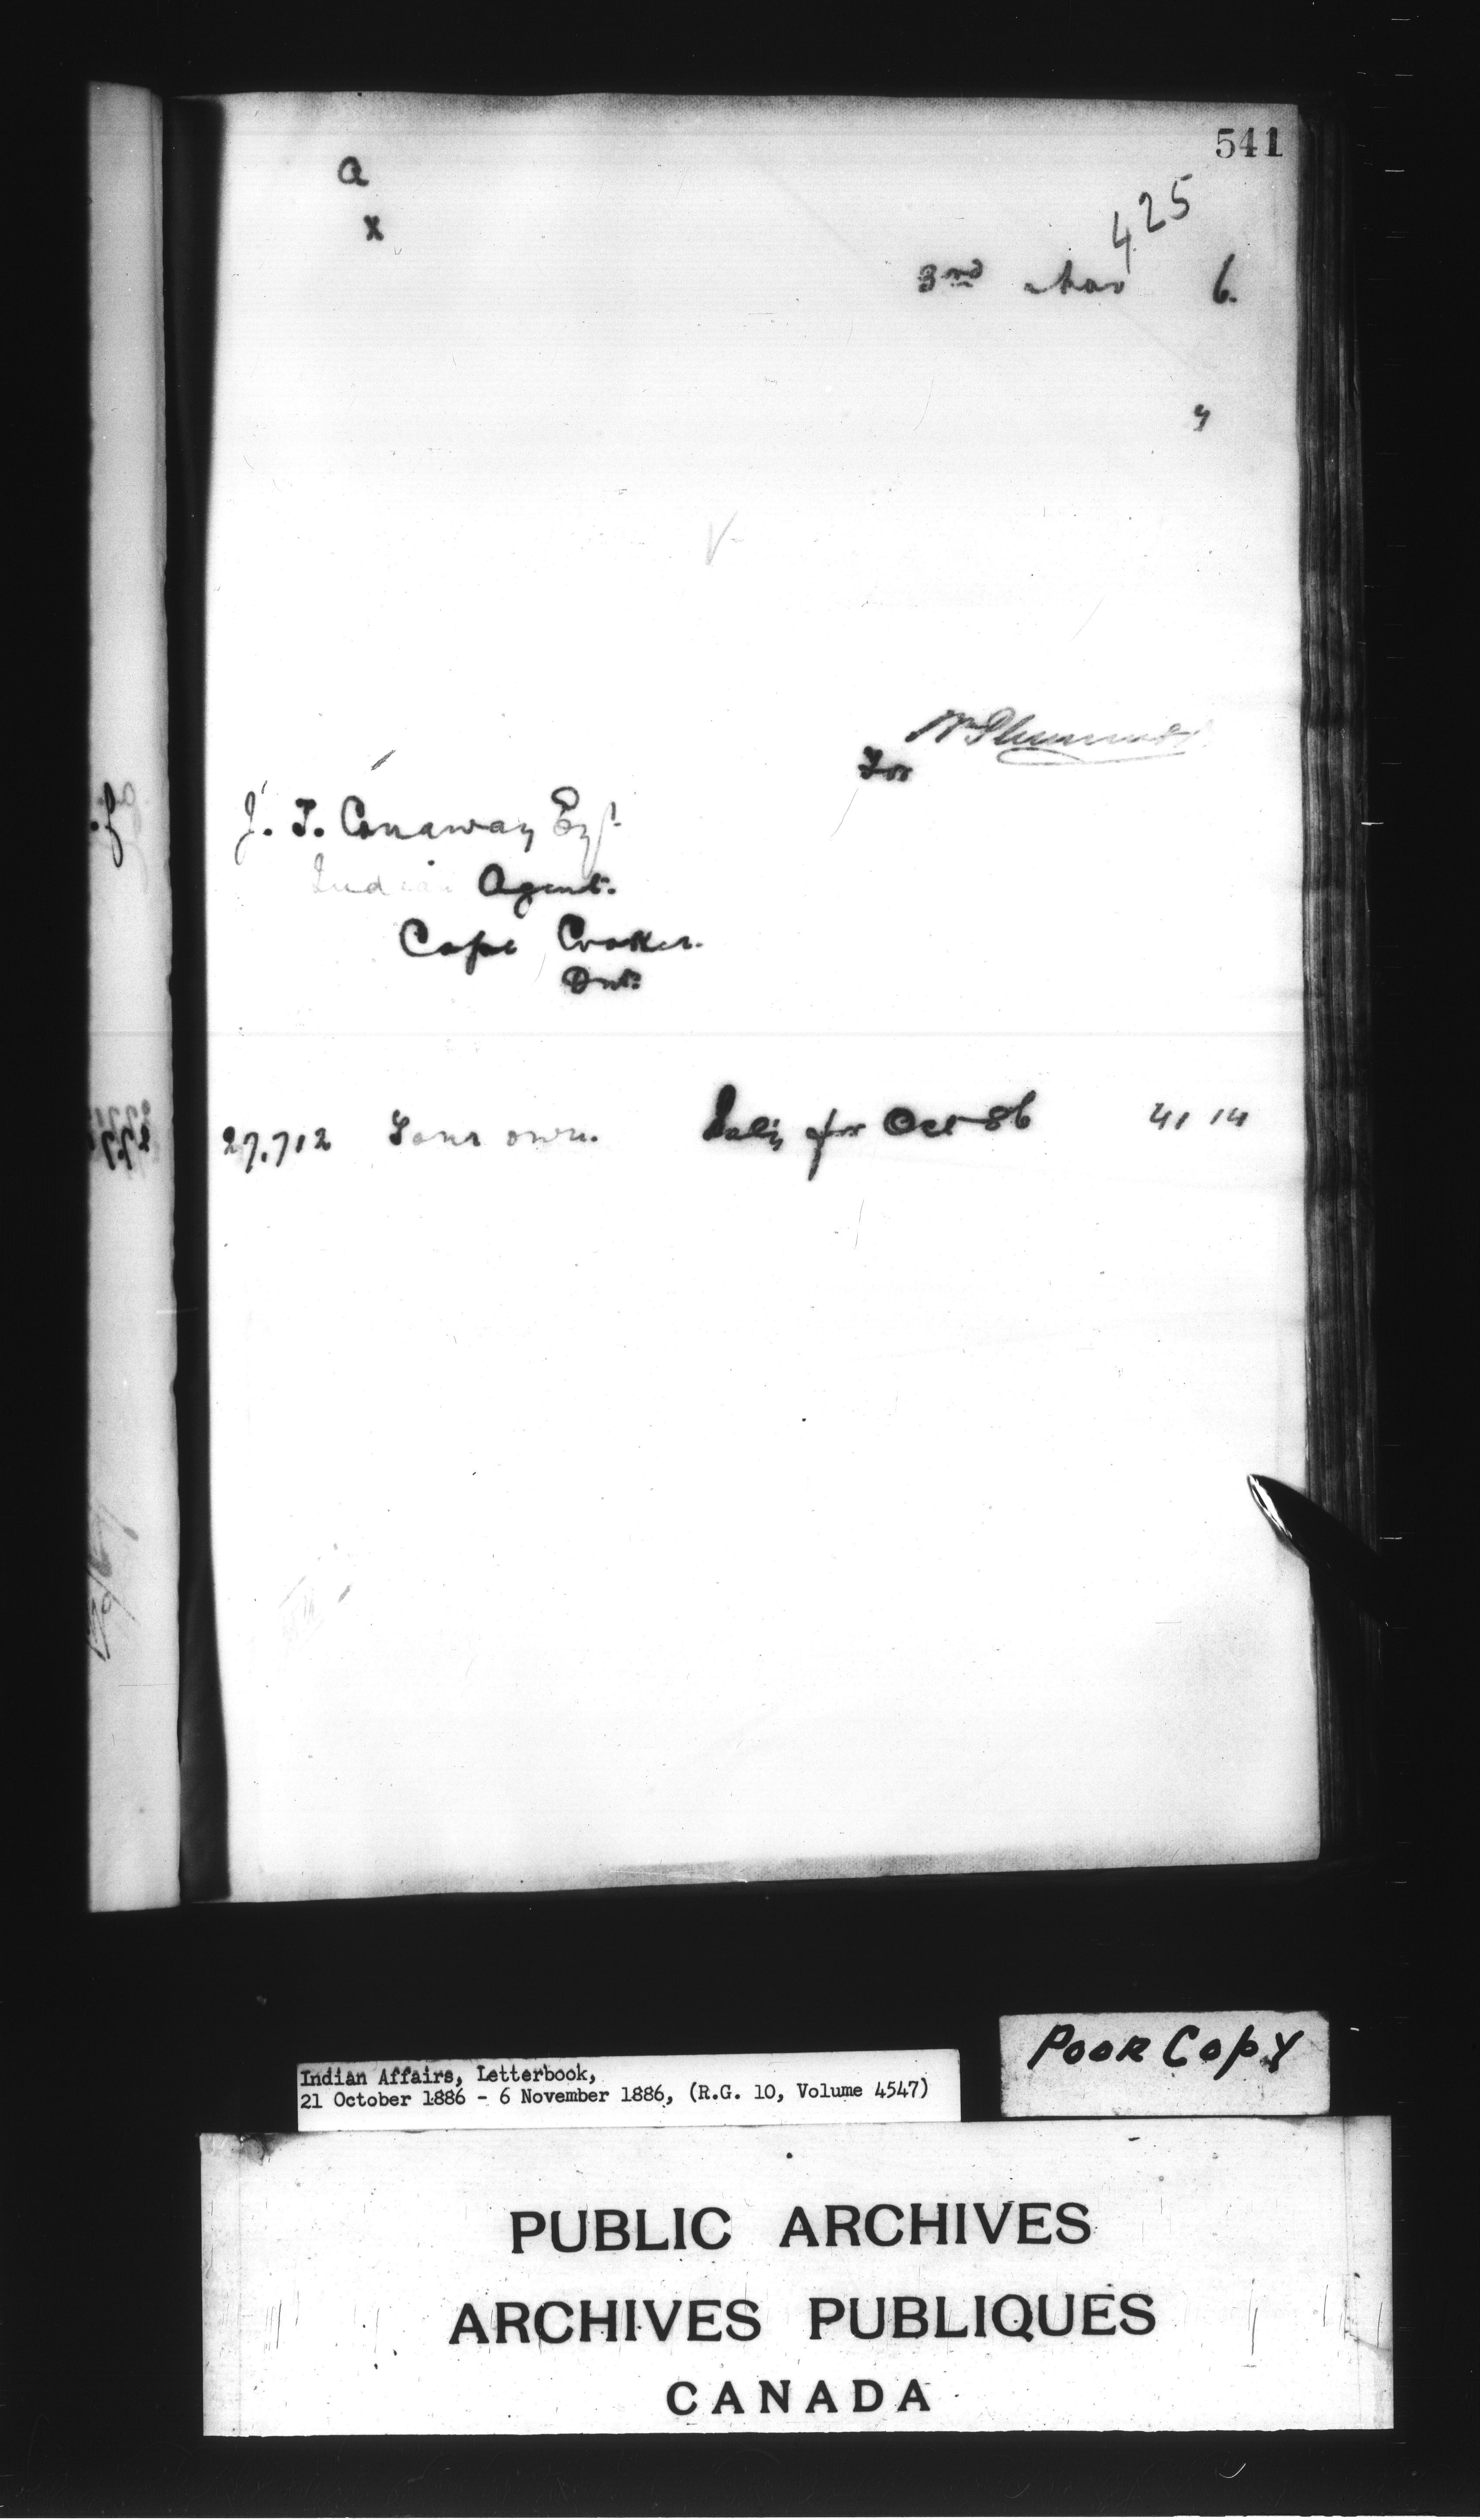 541
a
x
425
3rd Nov 6.
y
Wm Plummer
For
J. T. Conaway Esq.
Indian Agent.
Cape Croker.
Ont.
27,712 Your own. Saly for Oct 86 41 14
Poor Copy
Indian Affairs, Letterbook,
21 October 1886 - 6 November 1886, (R.G. 10, Volume 4547)
PUBLIC ARCHIVES
ARCHIVES PUBLIQUES
CANADA